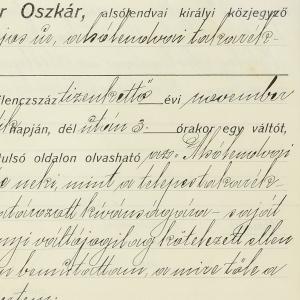 r Oszkár, alsólendvai királyi közjegyző
jas úr, a alsólendvai takarék-
ilencszáz tizenkettő évi november
ik napján, dél után 3. órakor egy váltót,
ulsó oldalon olvasható az Alsólendvai
e neki, mint a telepes takarék-
atározott kívánságára - saját
nyi váltójogilag kötelezett ellen
n bemutattam, a mire tőle a